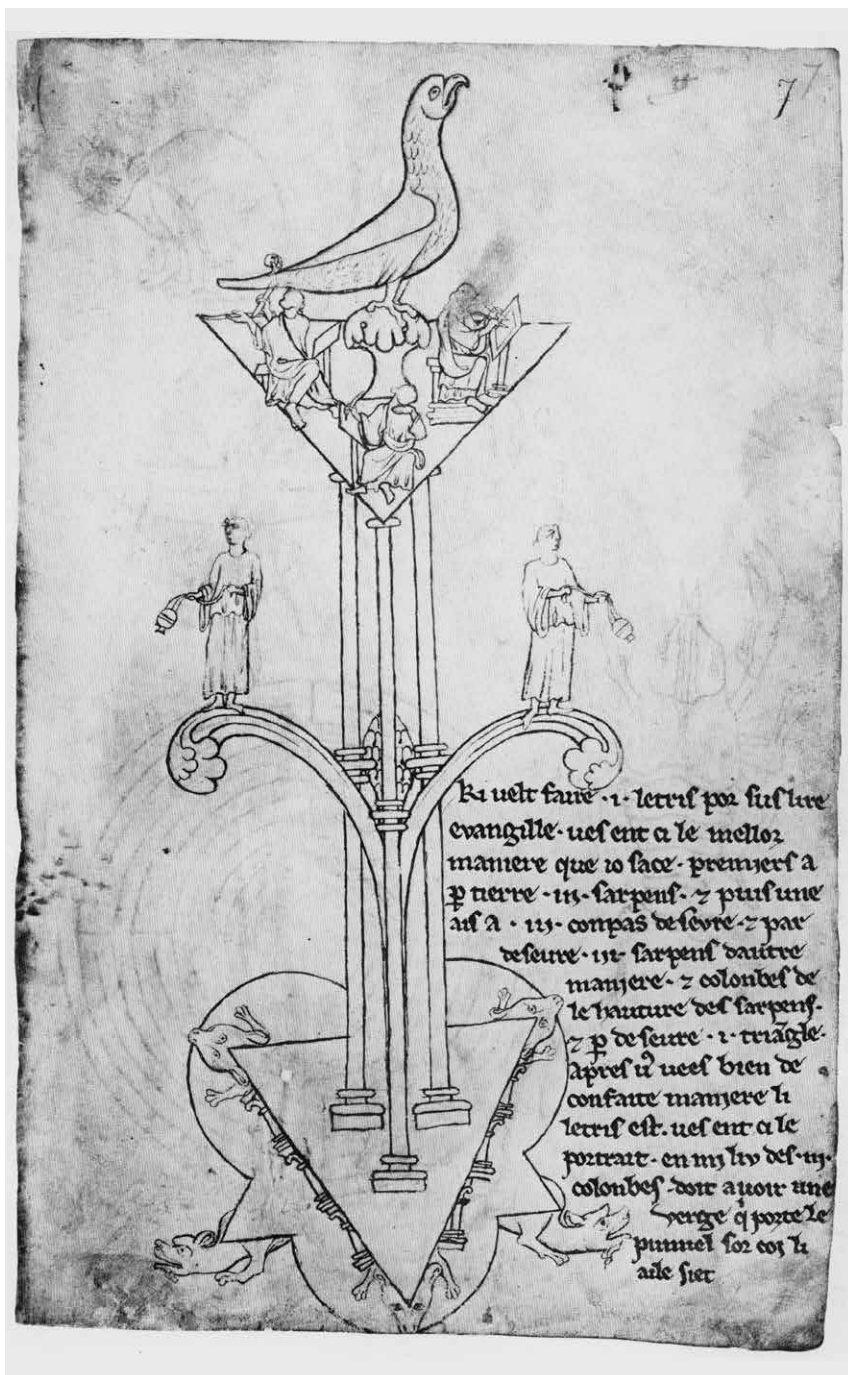 7 7
Ki velt faire ·i· letris por sus lire
evangille· ves ent ci le mellor
maniere que io face· premiers a
p̄ tierre ·iij· sarpens· ⁊ puis une
ais a · iij· conpas desevre· ⁊ par
deseure ·iij· sarpens dautre
maniere· ⁊ colonbes de
le hauture des sarpens·
⁊ p̄ deseure ·i· triāgle·
Apres v9 vees bien de
confaite maniere li
letris est. ves ent ci le
portrait· en mj liv des ·iij·
colonbes· doit avoir une
verge q̇ porte le
pumiel sor coi li
aile siet